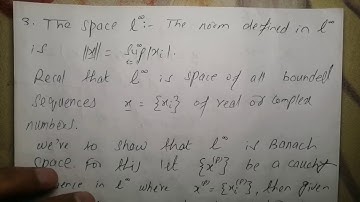 3. The space l^∞ :- The norm defined in l^∞
is ||x|| = sup_i |x_i|.
Recal that l^∞ is space of all bounded
sequences x = {x_i} of real or complex
numbers.
We're to show that l^∞ is Banach
space. For this let {x^(p)} be a cauchy
ence in l^∞ where x^(p) = {x_i^(p)}, then given